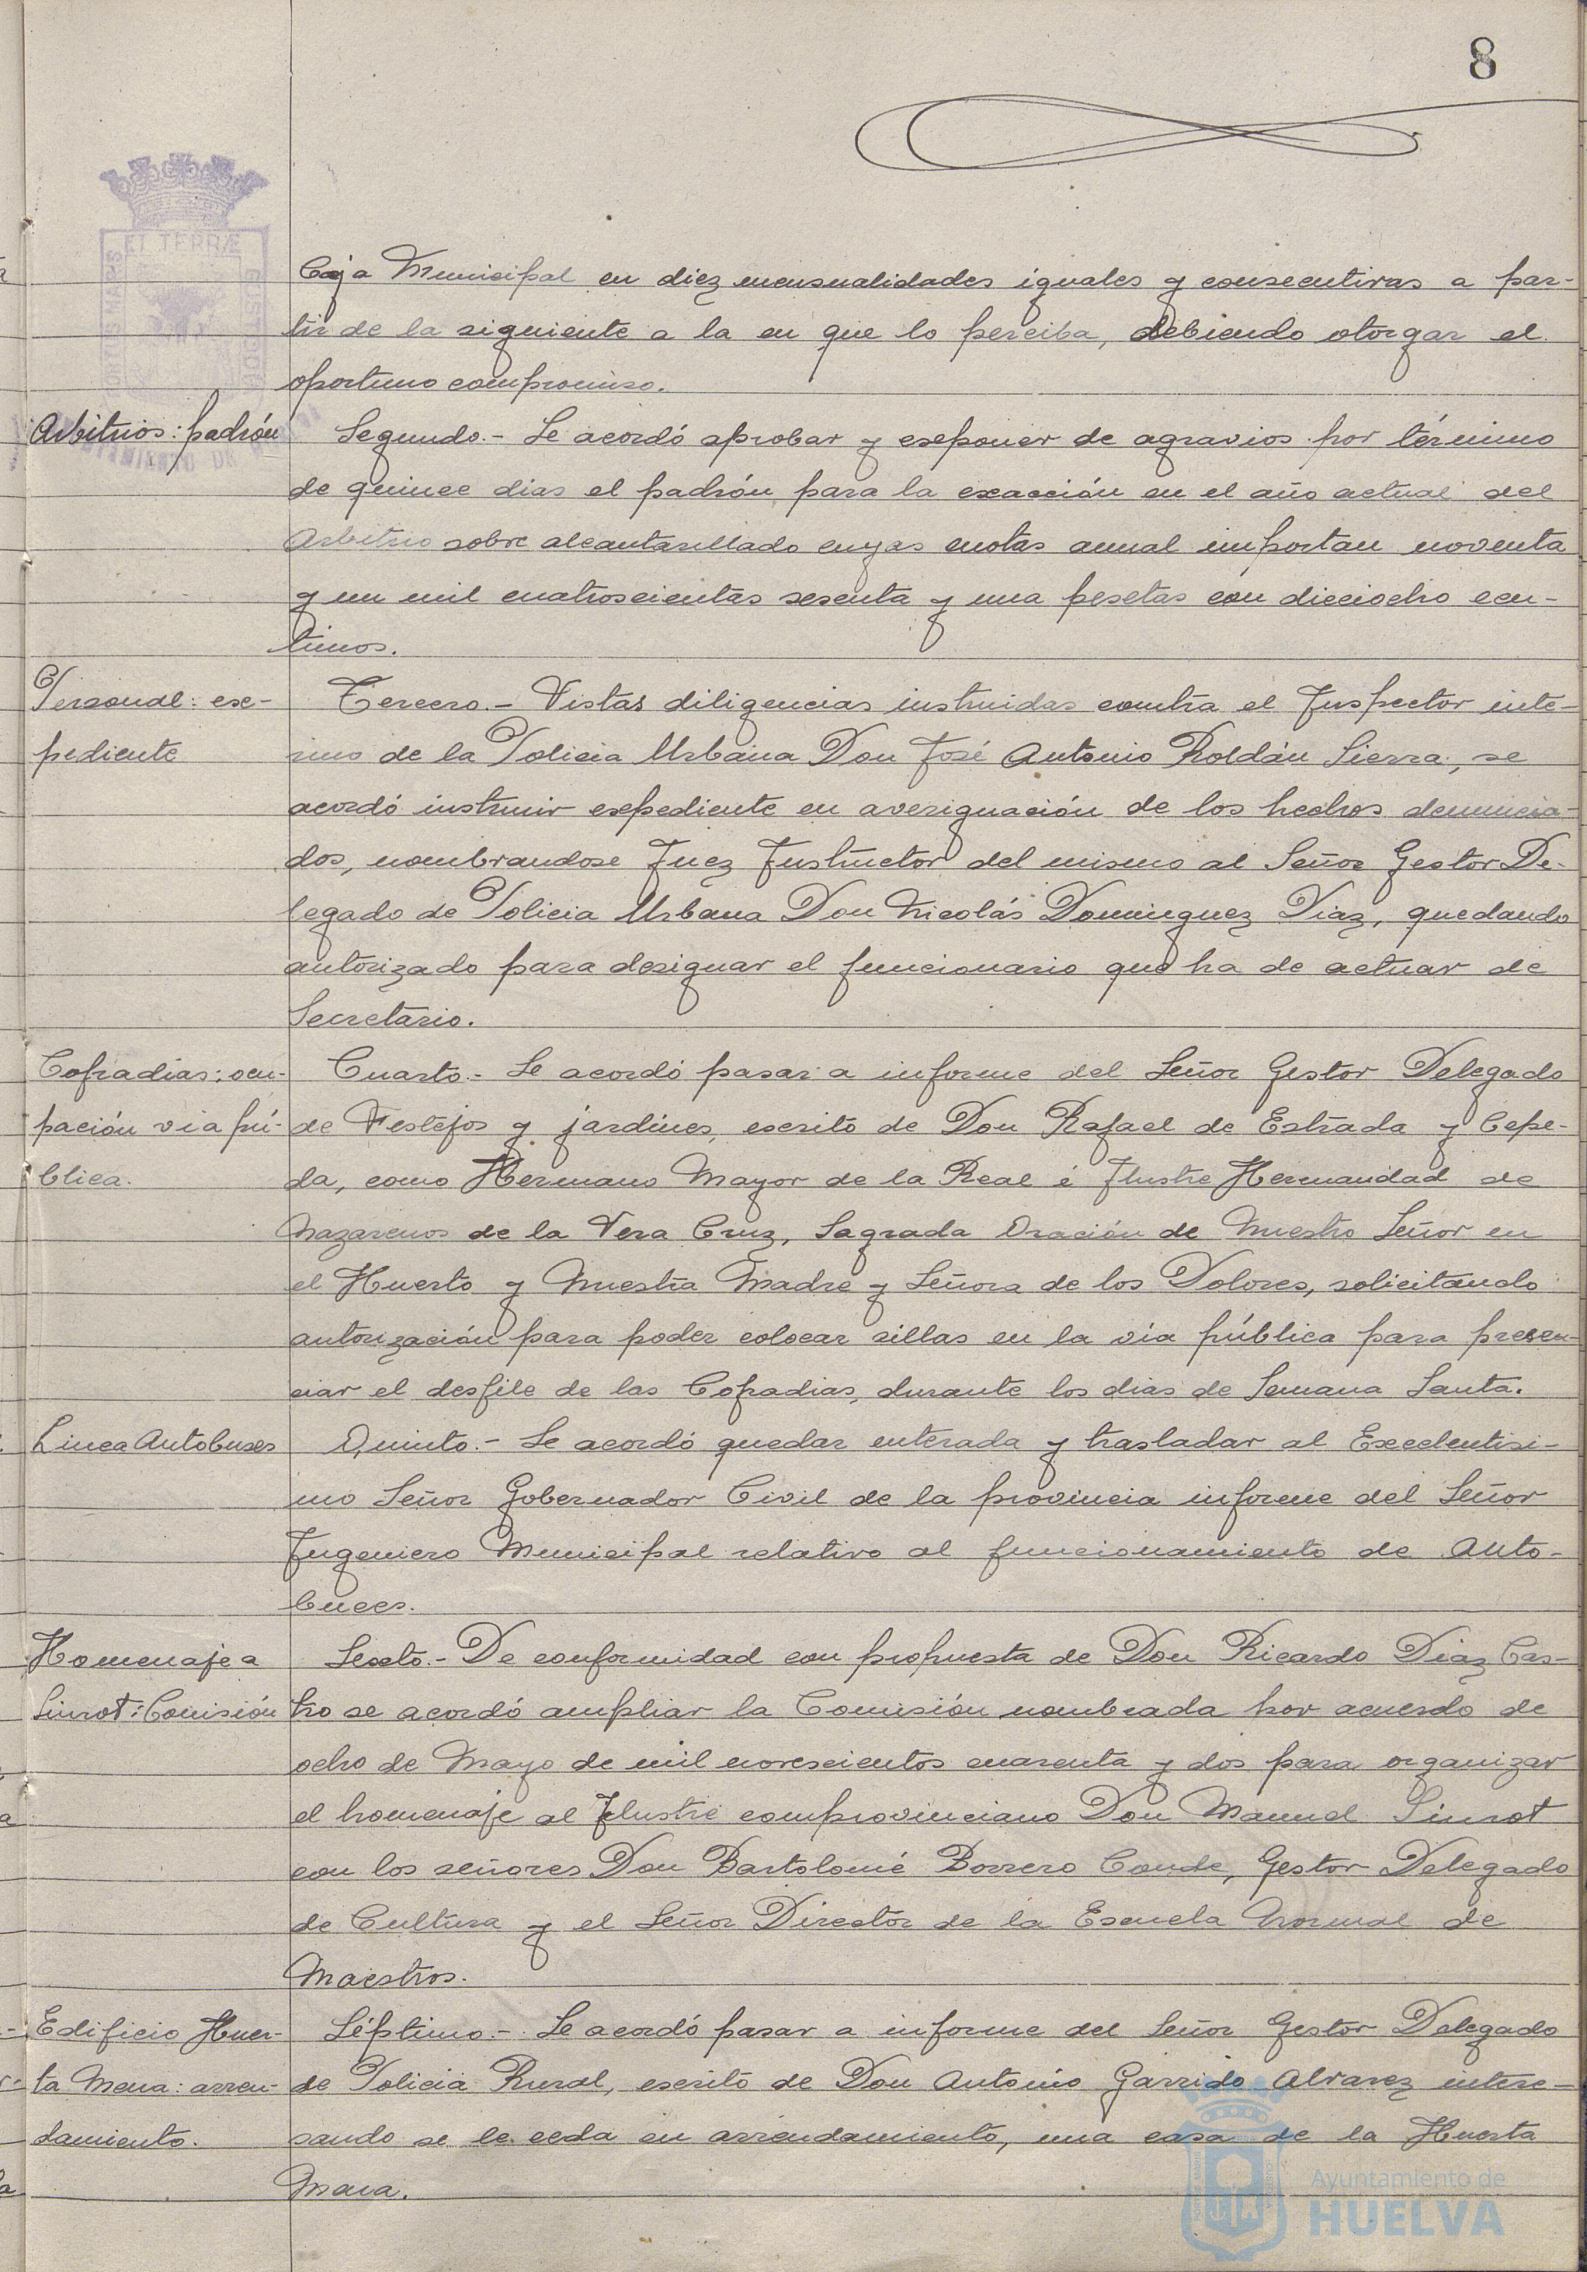 8
ET TERRÆ
Caja Municipal en diez mensualidades iguales y consecutivas a par-
tir de la siguiente a la en que lo perciba, debiendo otorgar el
oportuno compromiso.
Arbitrios: padrón
Segundo.- Se acordó aprobar y exponer de agravios por término
de quince dias el padrón para la exacción en el año actual del
Arbitrio sobre alcantarillado cuyas cuotas anual importan noventa
y un mil cuatroscientas sesenta y una pesetas con dieciocho cen-
timos.
Personal: ex-
pediente
Tercero.- Vistas diligencias instruidas contra el Inspector inte-
rino de la Policia Urbana Don José Antonio Roldán Sierra, se
acordó instruir expediente en averiguación de los hechos denuncia-
dos, nombrandose Juez Instructor del mismo al Señor Gestor De-
legado de Policia Urbana Don Nicolás Dominguez Diaz, quedando
autorizado para designar el funcionario que ha de actuar de
Secretario.
Cofradias: ocu-
pación via pú-
blica.
Cuarto.- Se acordó pasar a informe del Señor Gestor Delegado
de Festejos y jardines, escrito de Don Rafael de Estrada y Cepe-
da, como Hermano Mayor de la Real é Ilustre Hermandad de
Nazarenos de la Vera Cruz, Sagrada Oración de Nuestro Señor en
el Huerto y Nuestra Madre y Señora de los Dolores, solicitando
autorización para poder colocar sillas en la via pública para presen-
ciar el desfile de las Cofradias, durante los dias de Semana Santa.
Linea Autobuses
Quinto.- Se acordó quedar enterada y trasladar al Excelentisi-
mo Señor Gobernador Civil de la provincia informe del Señor
Ingeniero Municipal relativo al funcionamiento de Auto-
buces.
Homenaje a
Siurot: Comisión
Sexto.- De conformidad con propuesta de Don Ricardo Diaz Cas-
tro se acordó ampliar la Comisión nombrada por acuerdo de
ocho de Mayo de mil novescientos cuarenta y dos para organizar
el homenaje al Ilustre comprovinciano Don Manuel Siurot
con los señores Don Bartolomé Borrero Conde, Gestor Delegado
de Cultura y el Señor Director de la Escuela Normal de
Maestros.
Edificio Huer-
ta Mena: arren-
damiento.
Séptimo.- Se acordó pasar a informe del Señor Gestor Delegado
de Policia Rural, escrito de Don Antonio Garrido Alvarez intere-
sando se le ceda en arrendamiento, una casa de la Huerta
Mena.
Ayuntamiento de
HUELVA